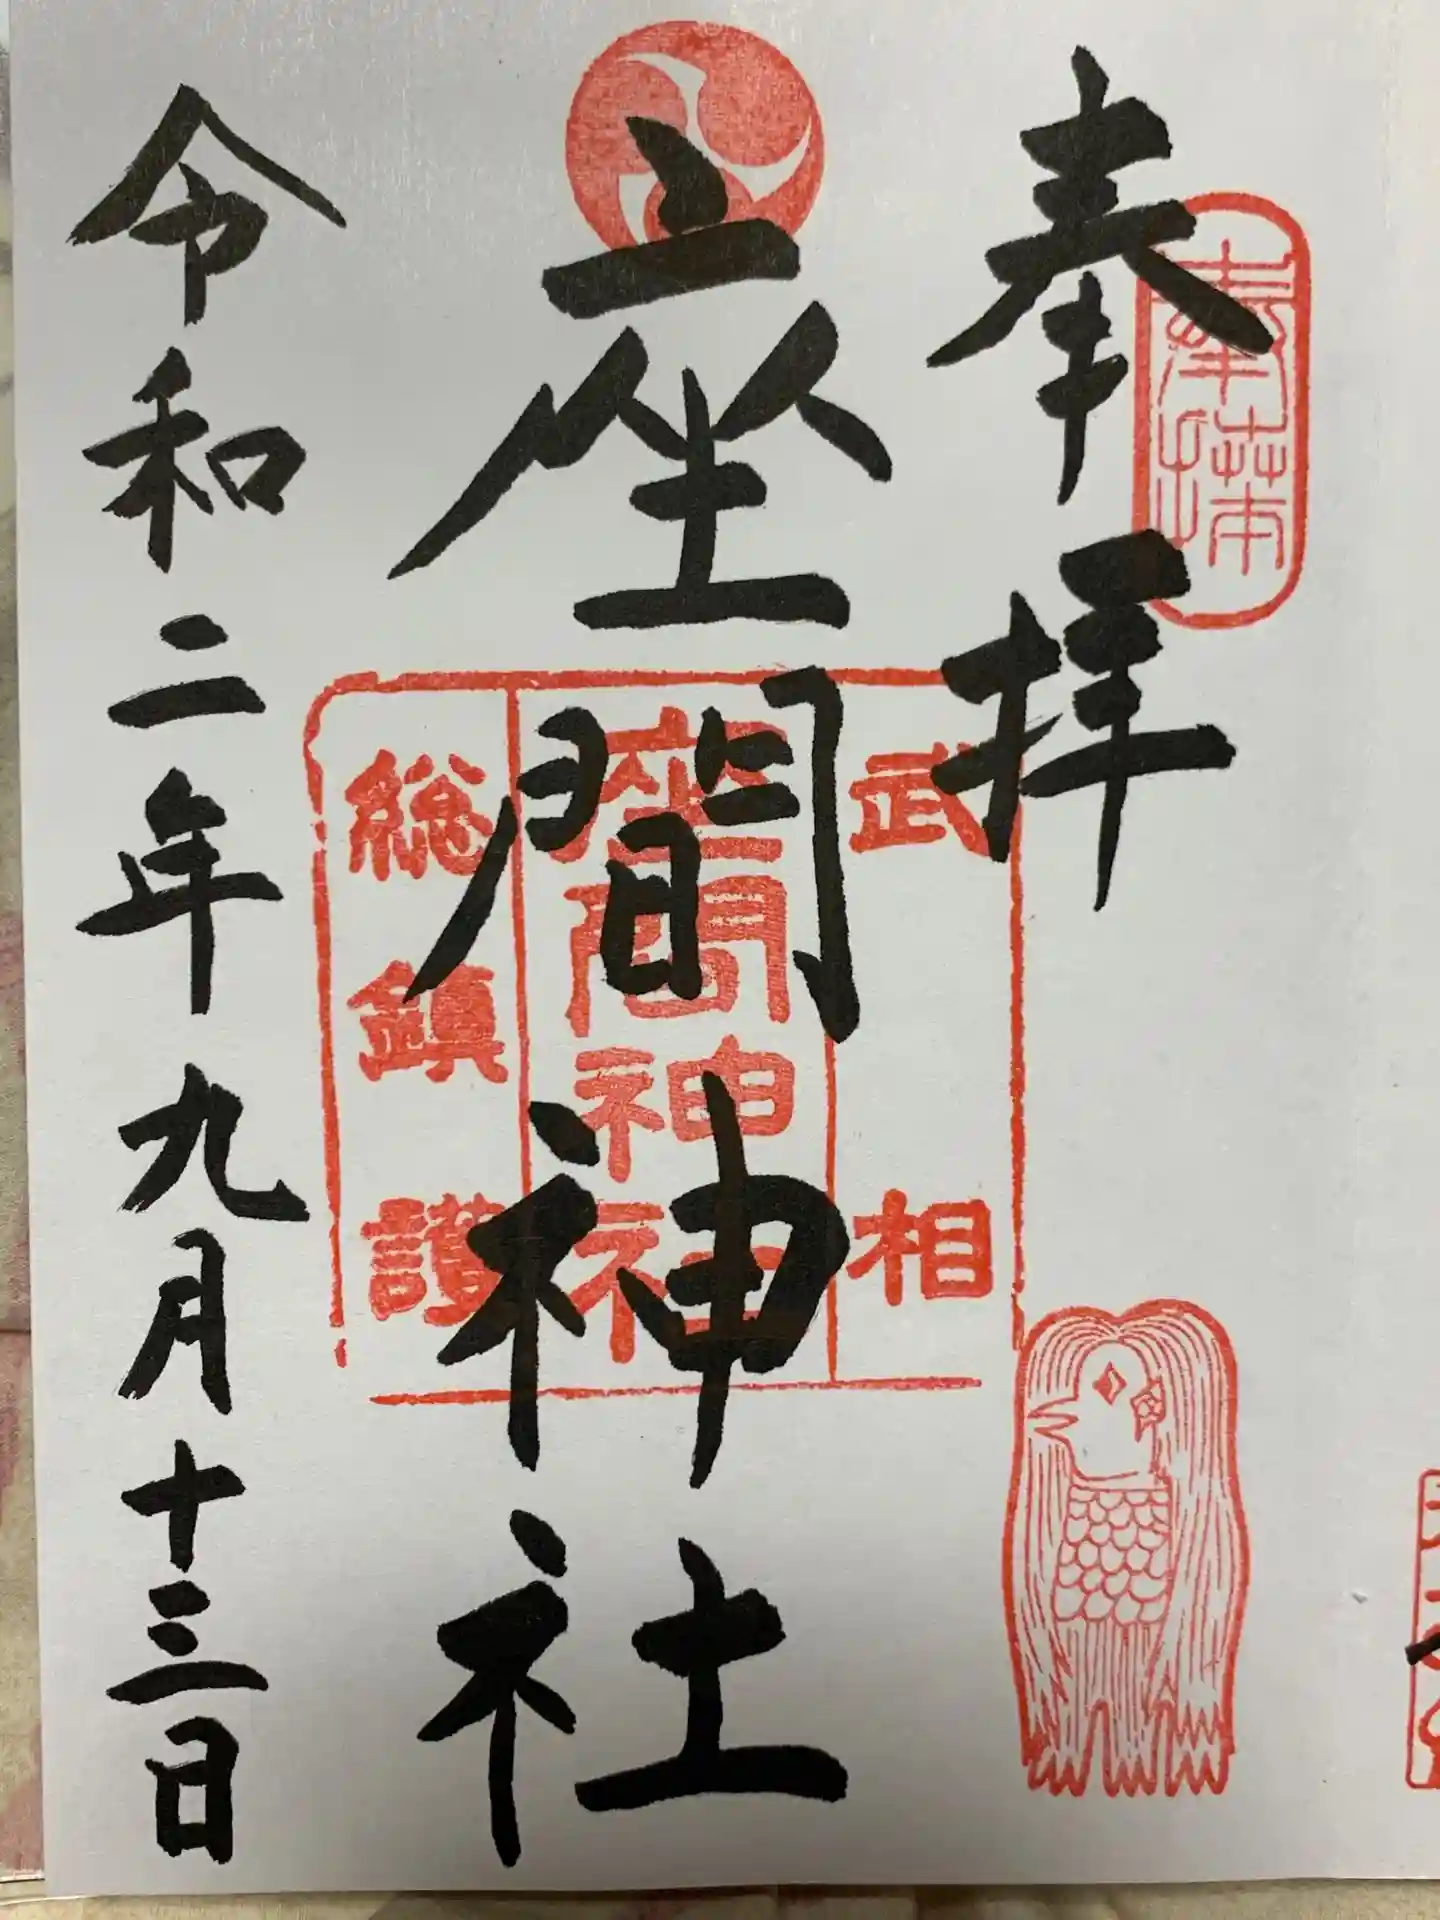 奉拝
奉拝
武相
座間神社
座間神社
総鎮護
令和二年九月十三日